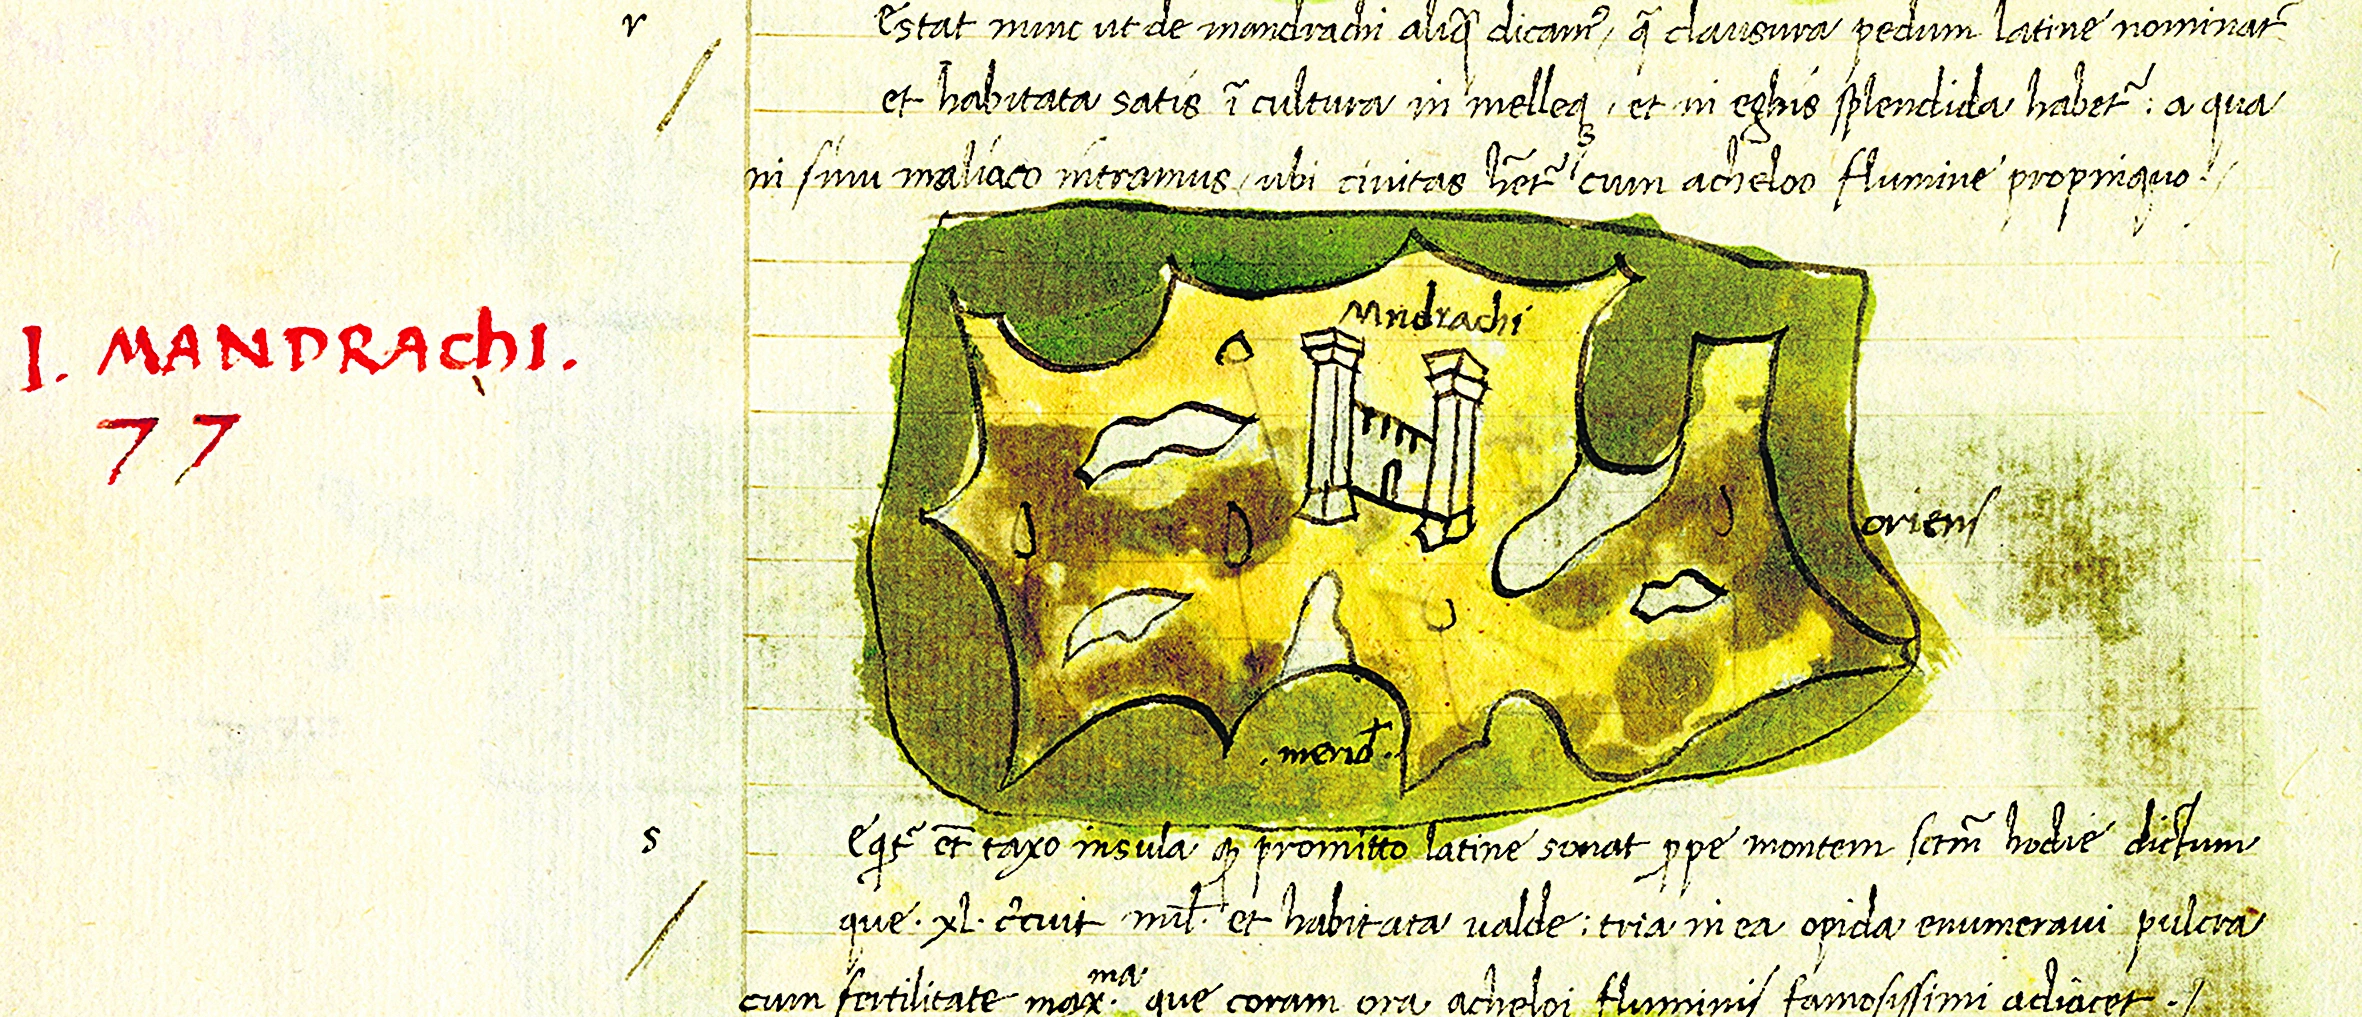 r
Estat nunc ut de mandrachi aliq̃ dicam⁹, q̃ clausura pedum latine nominat᷑
et habitata satis ĩ cultura in melleq3, et in eghis splendida habet᷑: a qua
in sinu maliaco intramus, ubi civitas hẽt᷑ cum acheloo flumine propinquo./
I. MANDRAchI.
77
Mndrachi
oriens
.merid̄.
s
Eqt᷑ et̄ taxo insula promitto latine sonat ꝓpe montem sctm̃ hodie dictum
que .xl. c̃cuit mil̄. et habitata ualde: tria in ea opida enumeraui pulcra
cum fertilitate max.ᵐᵃ que coram ora acheloi fluminis famosissimi adiacet ./